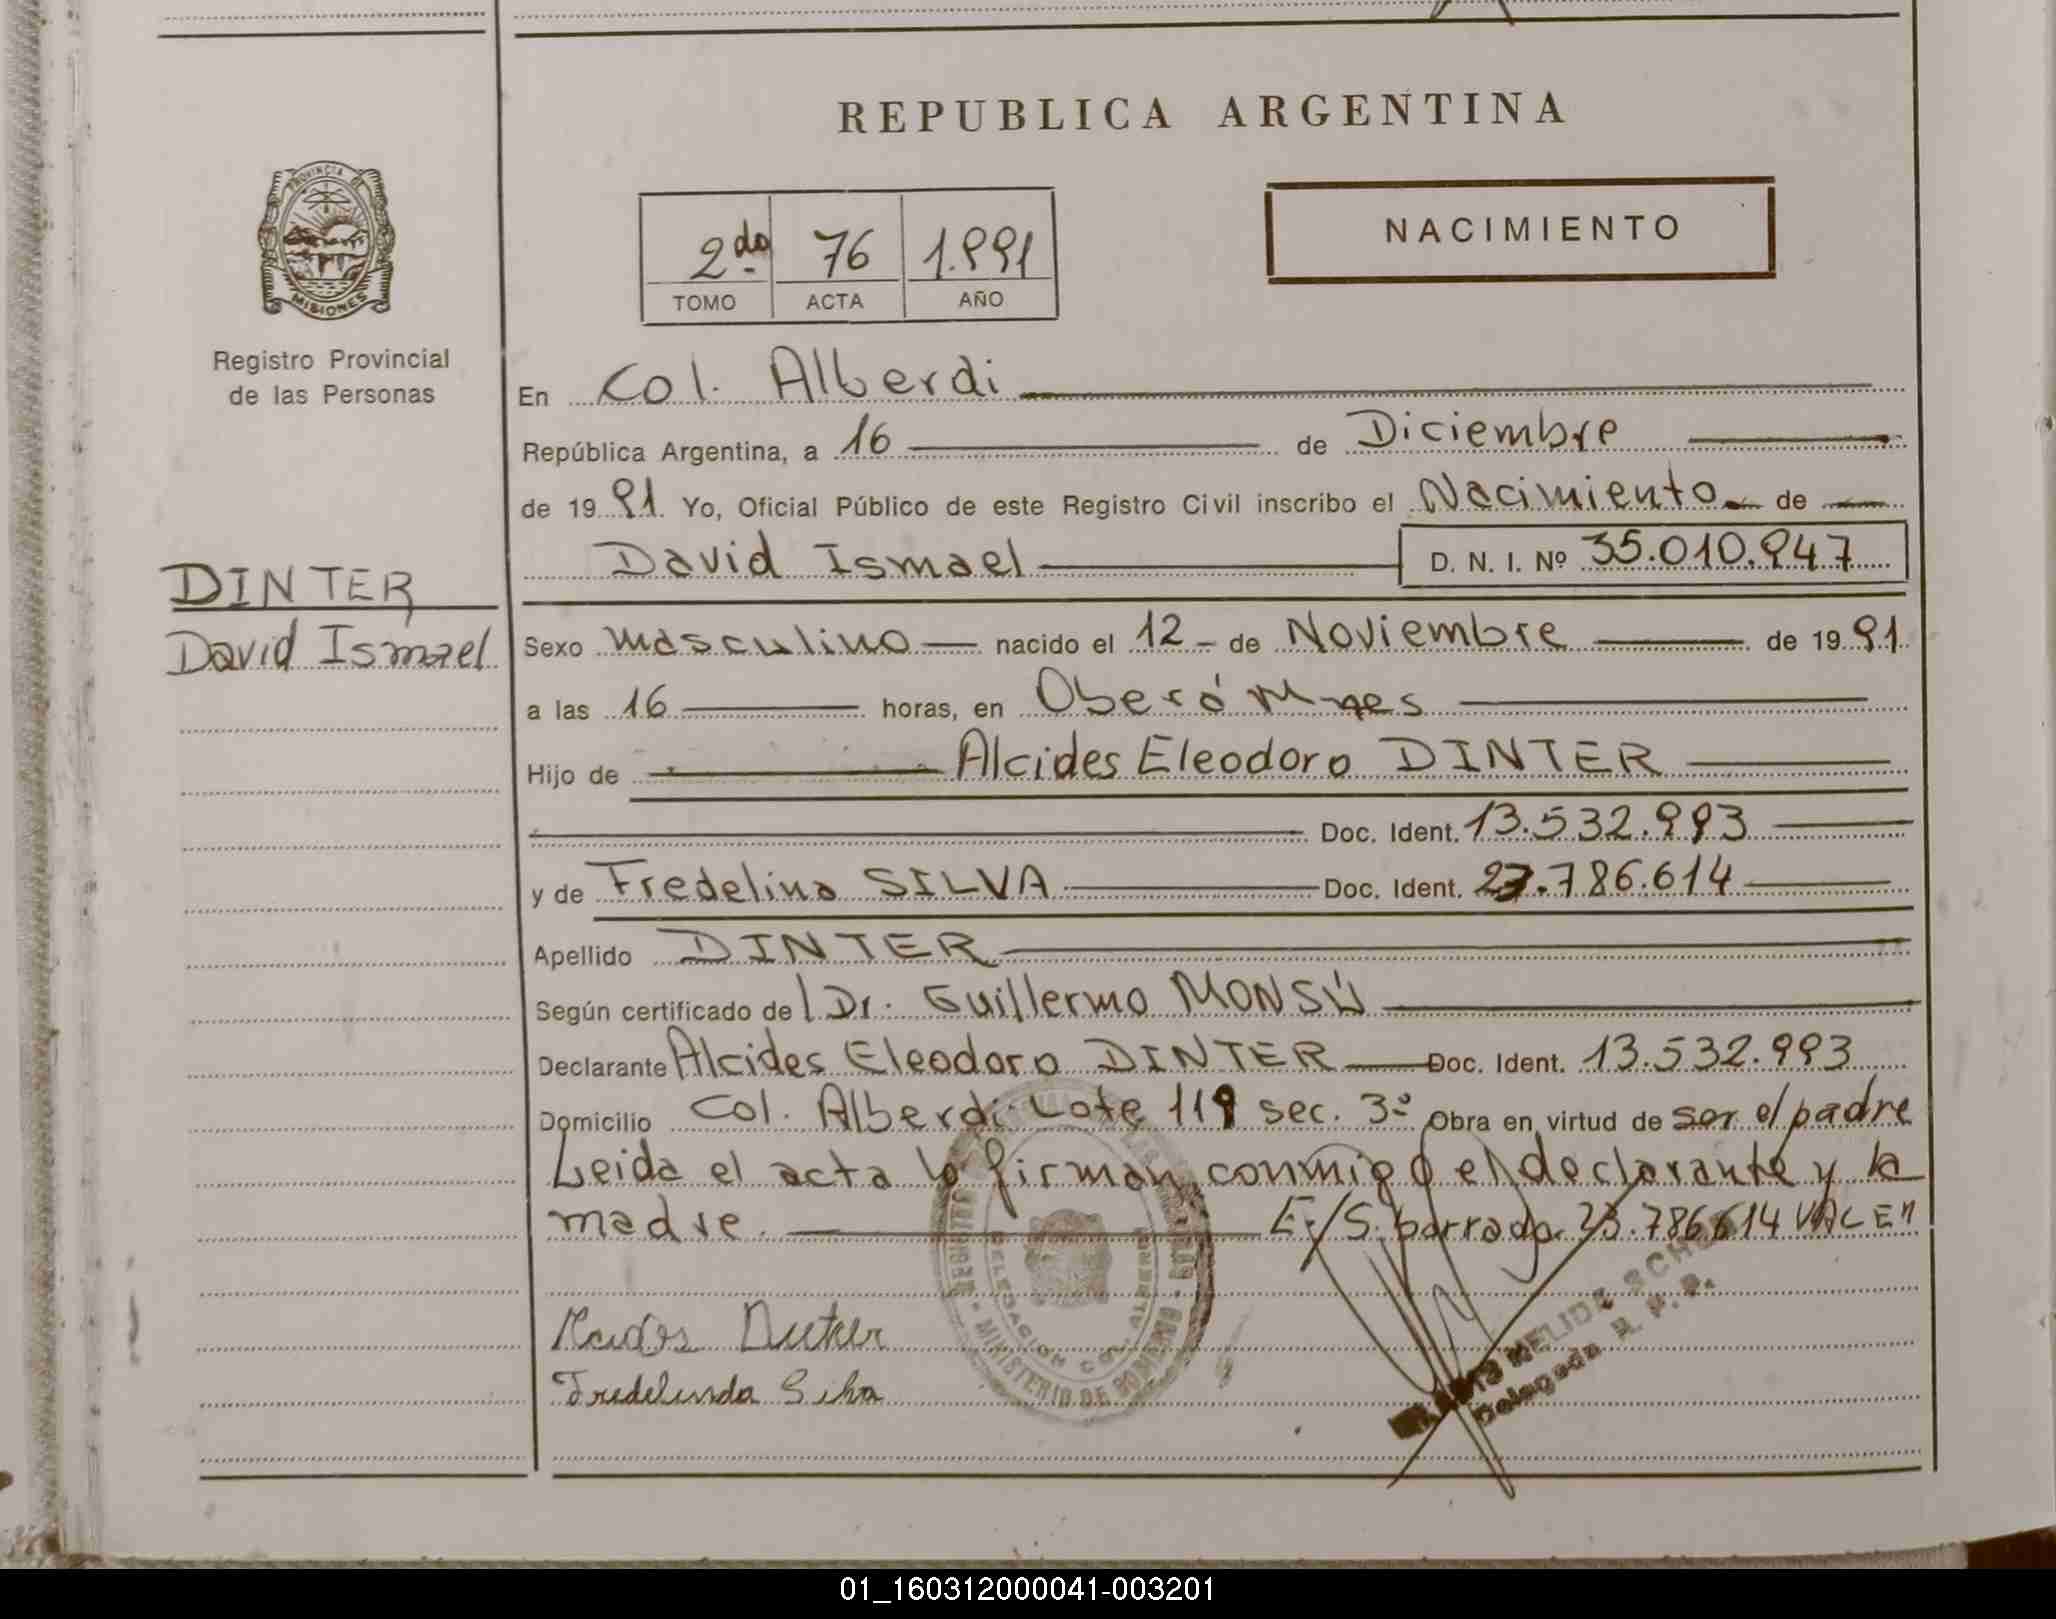 REPUBLICA ARGENTINA
NACIMIENTO
2do 76 1.991
TOMO ACTA AÑO
PROVINCIA DE
MISIONES
Registro Provincial
de las Personas
DINTER
David Ismael
En Col. Alberdi
República Argentina, a 16 de Diciembre
de 1991. Yo, Oficial Público de este Registro Civil inscribo el Nacimiento de
David Ismael D. N. I. Nº 35.010.947
Sexo masculino nacido el 12 de Noviembre de 1991.
a las 16 horas, en Oberá Mnes
Hijo de Alcides Eleodoro DINTER
Doc. Ident. 13.532.993
y de Fredelina SILVA Doc. Ident. 23.786.614
Apellido DINTER
Según certificado del Dr. Guillermo MONSÚ
Declarante Alcides Eleodoro DINTER Doc. Ident. 13.532.993
Domicilio Col. Alberdi Lote 119 sec. 3º Obra en virtud de ser el padre
Leida el acta lo firman conmigo el declarante y la
madre. E/S. borrado 23.786.614 VALEN
Fredelinda Silva
DELEGACION COL. ALBERDI
MINISTERIO DE GOBIERNO
NELIDA
Delegada R. P. P.
01_160312000041-003201